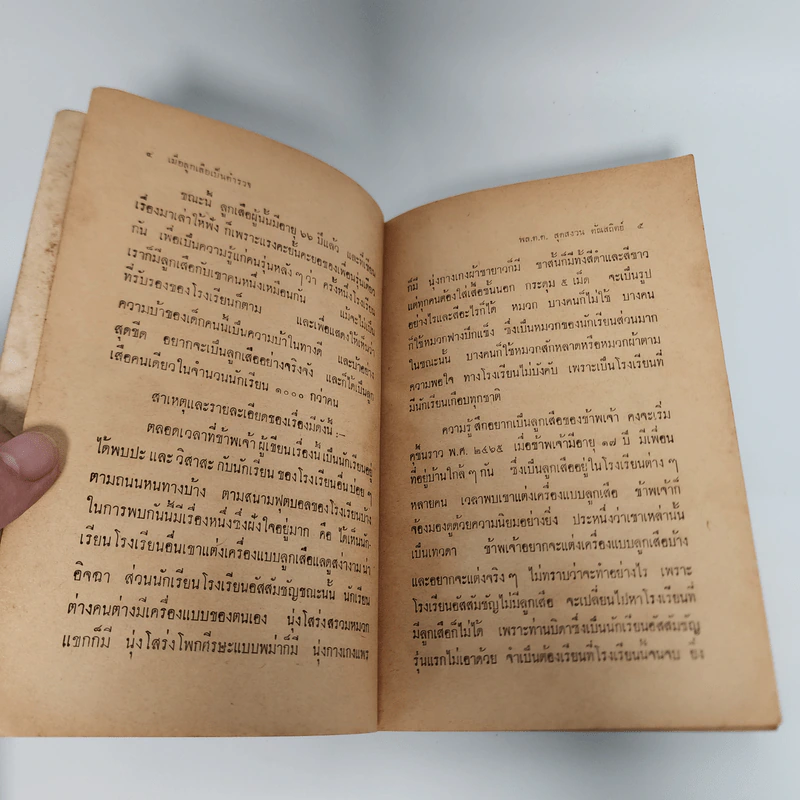 ๔ เมื่อลูกเสือเป็นตำรวจ
ขณะนี้ ลูกเสือผู้นั้นมีอายุ ๖๖ ปีแล้ว และที่เขียน
เรื่องมาเล่าให้ฟัง ก็เพราะแรงคะยั้นคะยอของเพื่อนรุ่นเดียว
กัน เพื่อเป็นความรู้แก่คนรุ่นหลัง ๆ ว่า ครั้งหนึ่งโรงเรียน
เราก็มีลูกเสือกับเขาคนหนึ่งเหมือนกัน แม้จะไม่เป็น
ที่รับรองของโรงเรียนก็ตาม และเพื่อแสดงให้เห็นว่า
ความบ้าของเด็กคนนี้เป็นความบ้าในทางดี และบ้าอย่าง
สุดขีด อยากจะเป็นลูกเสืออย่างจริงจัง และก็ได้เป็นลูก
เสือคนเดียวในจำนวนนักเรียน ๑๐๐๐ กว่าคน
สาเหตุและรายละเอียดของเรื่องมีดังนี้ :–
ตลอดเวลาที่ข้าพเจ้า ผู้เขียนเรื่องนี้ เป็นนักเรียนอยู่
ได้พบปะ และ วิสาสะ กับนักเรียน ของโรงเรียนอื่น บ่อย ๆ
ตามถนนหนทางบ้าง ตามสนามฟุตบอลของโรงเรียนบ้าง
ในการพบกันนี้มีเรื่องหนึ่งซึ่งฝังใจอยู่มาก คือ ได้เห็นนัก-
เรียนโรงเรียนอื่นเขาแต่งเครื่องแบบลูกเสือแลดูสง่างามน่า
อิจฉา ส่วนนักเรียนโรงเรียนอัสสัมชัญขณะนั้น นักเรียน
ต่างคนต่างมีเครื่องแบบของตนเอง นุ่งโสร่งสรวมหมวก
แขกก็มี นุ่งโสร่งโพกศีรษะแบบพม่าก็มี นุ่งกางเกงแพร
พล.ต.ต. สุดสงวน ตัณสถิตย์ ๕
ก็มี นุ่งกางเกงผ้าขายาวก็มี ขาสั้นก็มีทั้งสีดำและสีขาว
แต่ทุกคนต้องใส่เสื้อชั้นนอก กระดุม ๕ เม็ด จะเป็นรูป
อย่างไรและสีอะไรก็ได้ หมวก บางคนก็ไม่ใช้ บางคน
ก็ใช้หมวกฟางปีกแข็ง ซึ่งเป็นหมวกของนักเรียนส่วนมาก
ในขณะนั้น บางคนก็ใช้หมวกสักหลาดหรือหมวกผ้าตาม
ความพอใจ ทางโรงเรียนไม่บังคับ เพราะเป็นโรงเรียนที่
มีนักเรียนเกือบทุกชาติ
ความรู้สึกอยากเป็นลูกเสือของข้าพเจ้า คงจะเริ่ม
คุขึ้นราว พ.ศ. ๒๔๖๕ เมื่อข้าพเจ้ามีอายุ ๑๗ ปี มีเพื่อน
ที่อยู่บ้านใกล้ ๆ กัน ซึ่งเป็นลูกเสืออยู่ในโรงเรียนต่าง ๆ
หลายคน เวลาพบเขาแต่งเครื่องแบบลูกเสือ ข้าพเจ้าก็
จ้องมองดูด้วยความนิยมอย่างยิ่ง ประหนึ่งว่าเขาเหล่านั้น
เป็นเทวดา ข้าพเจ้าอยากจะแต่งเครื่องแบบลูกเสือบ้าง
และอยากจะแต่งจริง ๆ ไม่ทราบว่าจะทำอย่างไร เพราะ
โรงเรียนอัสสัมชัญไม่มีลูกเสือ จะเปลี่ยนไปหาโรงเรียนที่
มีลูกเสือก็ไม่ได้ เพราะท่านบิดาซึ่งเป็นนักเรียนอัสสัมชัญ
รุ่นแรกไม่เอาด้วย จำเป็นต้องเรียนที่โรงเรียนนี้จนจบ ยิ่ง